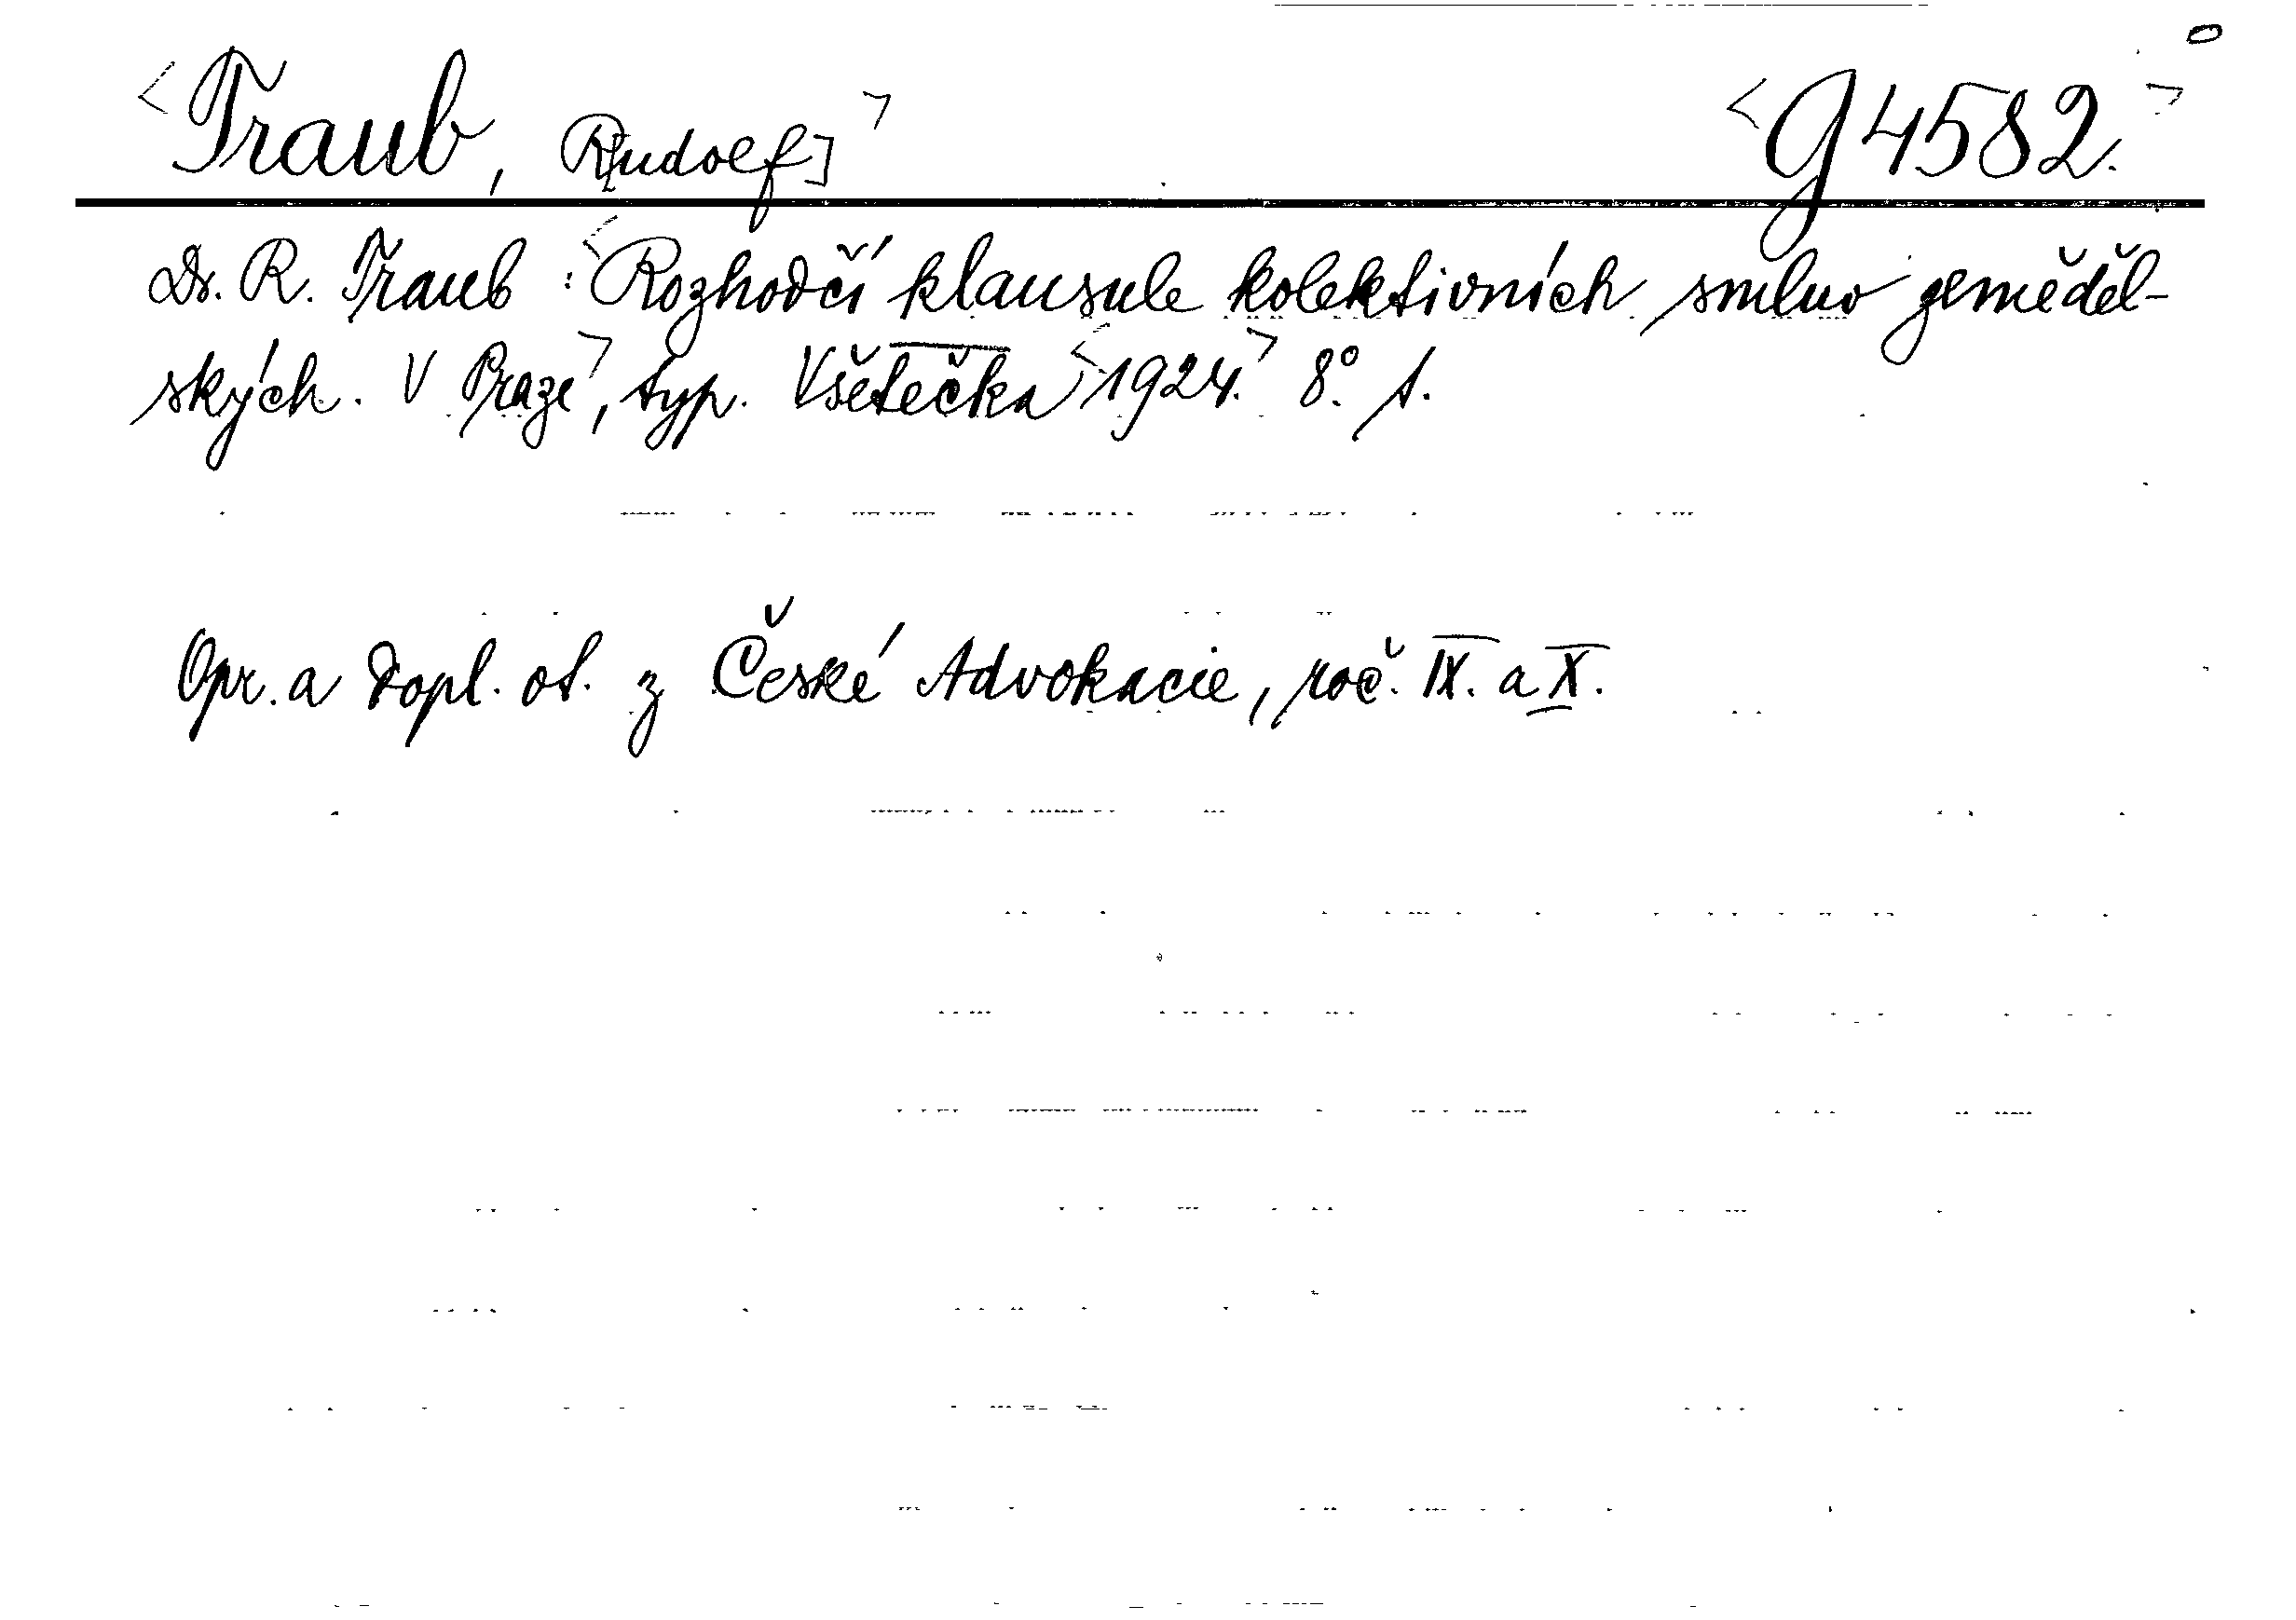 <Traub, R[udolf]> <G 4582.>
Dr. R. Traub: <Rozhodčí klausule kolektivních smluv zeměděl-
ských. V Praze>, typ. Všetečka <1924.> 8° s.
Opr. a dopl. ot. z České Advokacie, roč. IX. a X.